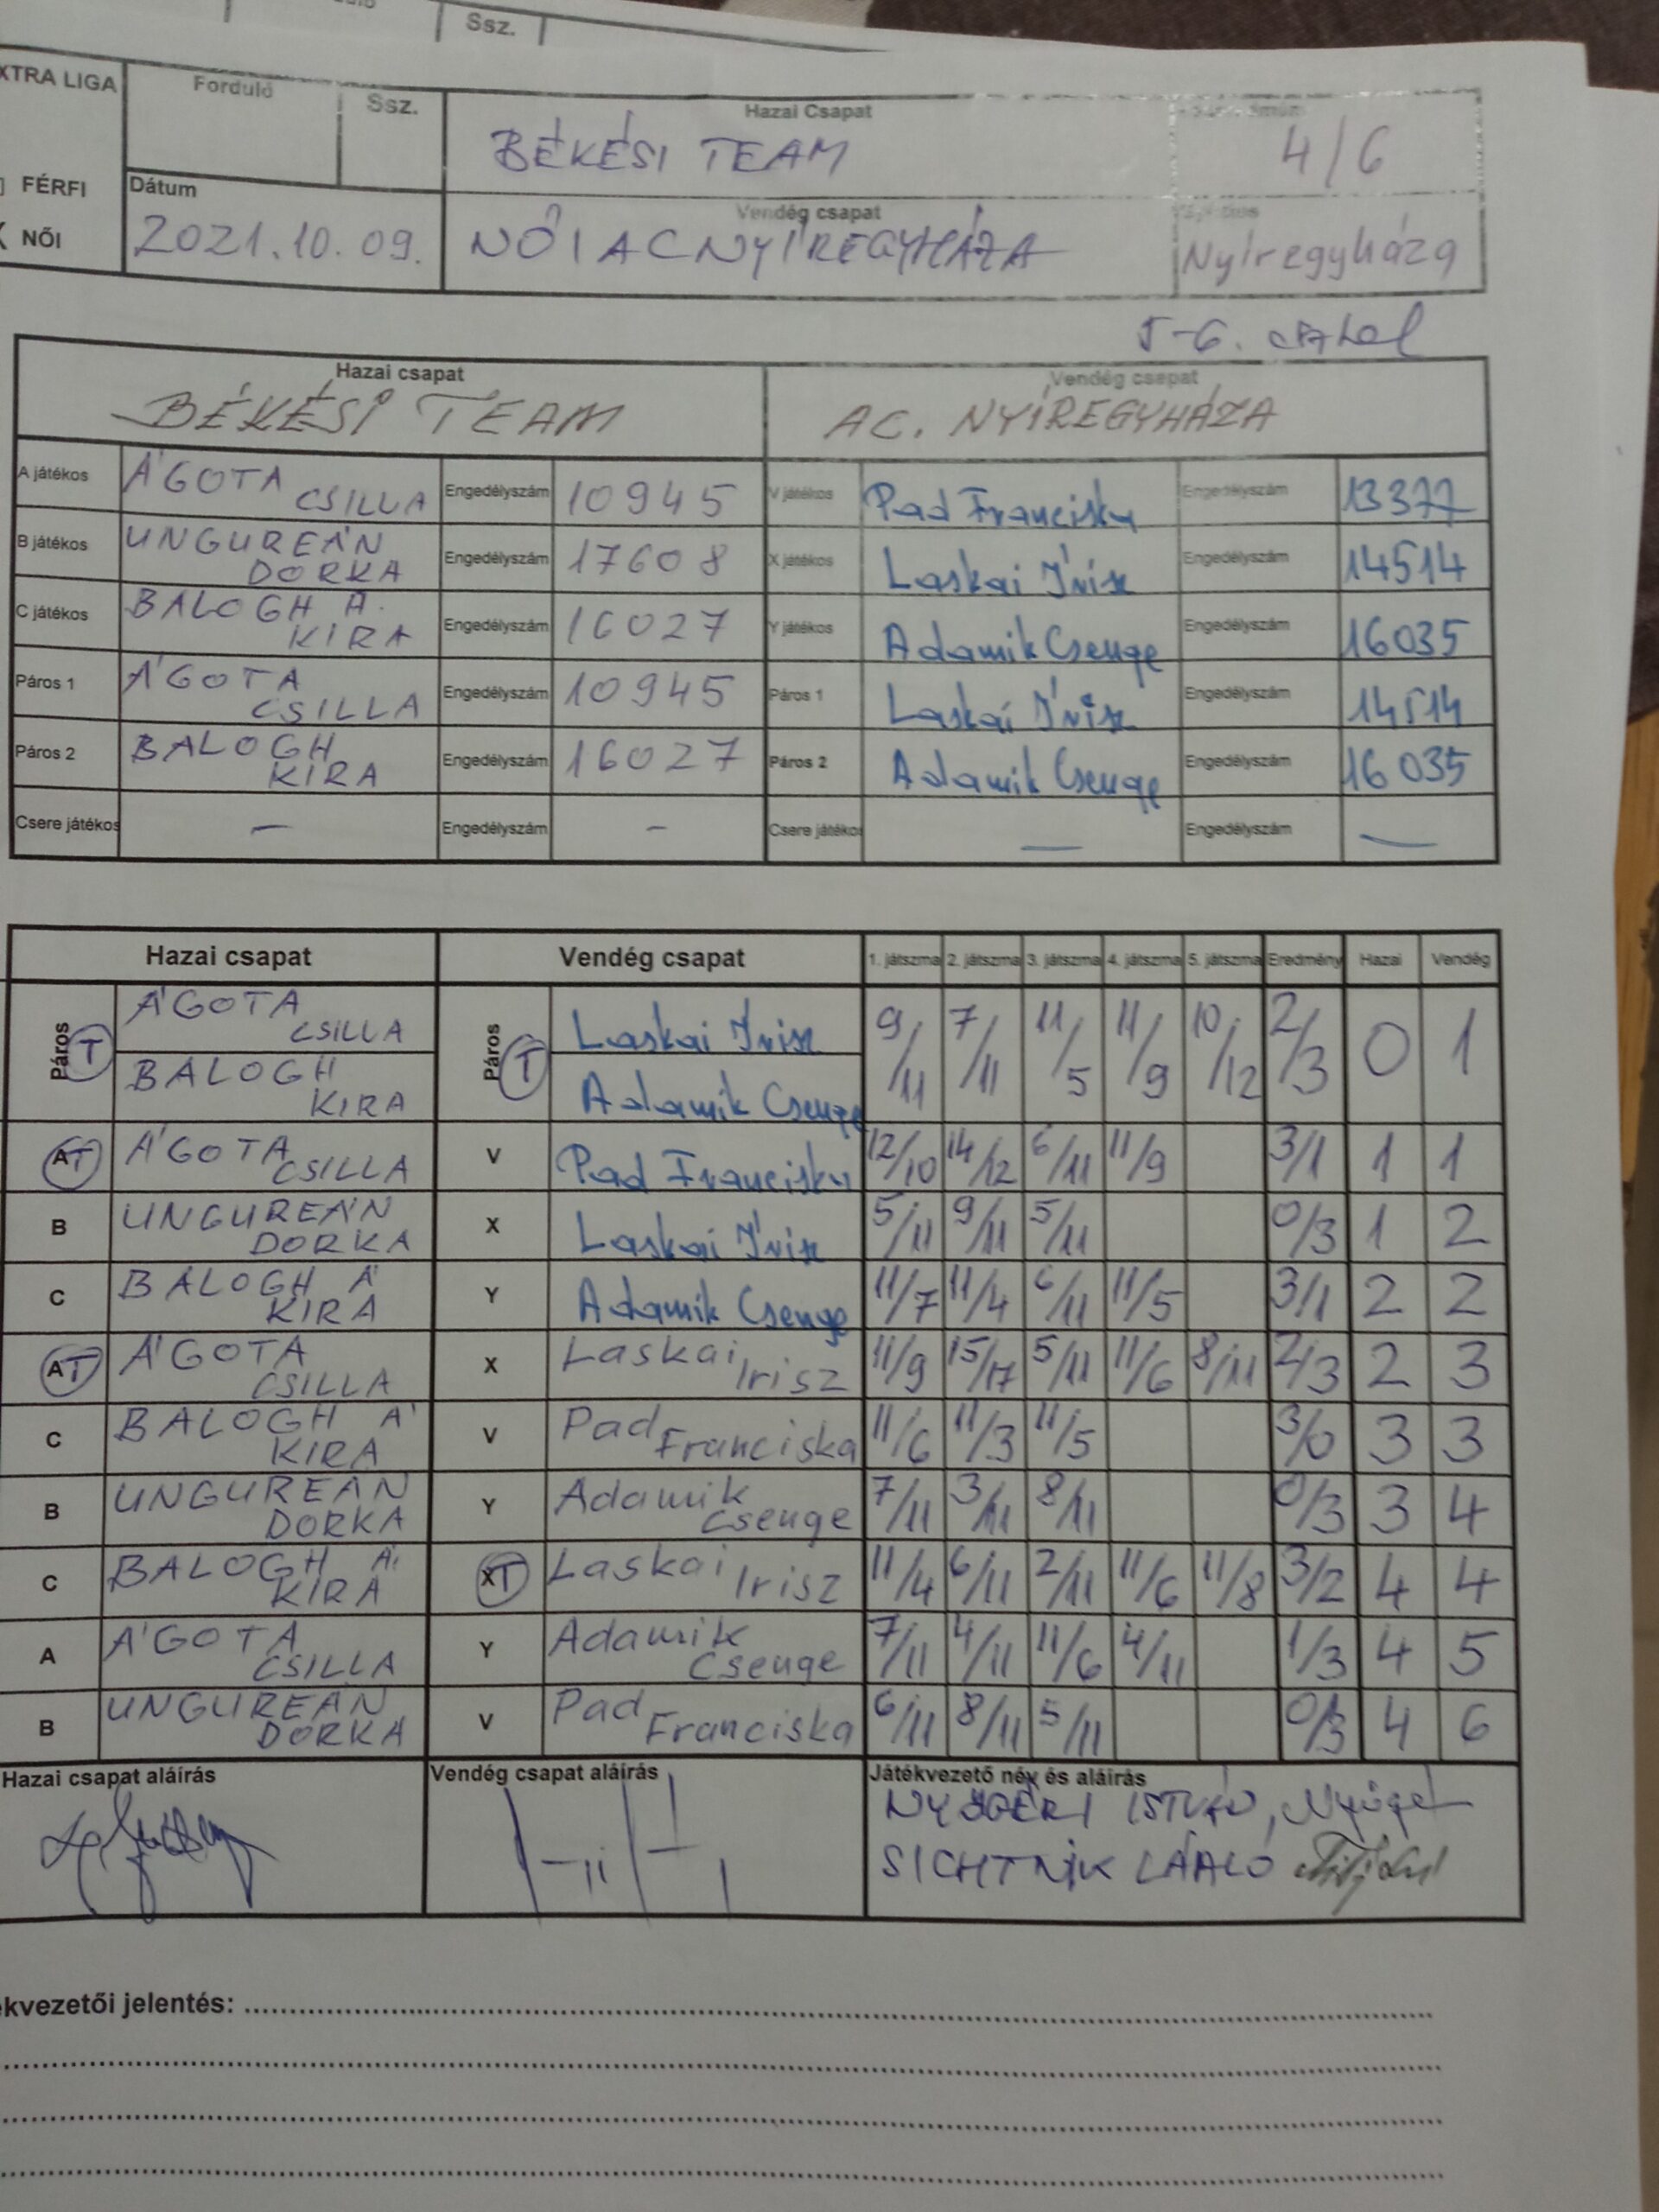 Ssz.
XTRA LIGA
Forduló
Ssz.
Hazai Csapat
BÉKÉSI TEAM
4/6
FÉRFI
NŐI
Dátum
2021.10.09.
Vendég csapat
NŐI AC NYÍREGYHÁZA
Nyíregyháza
5-6.
Hazai csapat
BÉKÉSI TEAM
Vendég csapat
AC. NYÍREGYHÁZA
A játékos ÁGOTA CSILLA Engedélyszám 10945 V játékos Pad Franciska Engedélyszám 13377
B játékos UNGUREÁN DORKA Engedélyszám 17608 X játékos Laskai Írisz Engedélyszám 14514
C játékos BALOGH Á. KIRA Engedélyszám 16027 Y játékos Adamik Csenge Engedélyszám 16035
Páros 1 ÁGOTA CSILLA Engedélyszám 10945 Páros 1 Laskai Írisz Engedélyszám 14514
Páros 2 BALOGH KIRA Engedélyszám 16027 Páros 2 Adamik Csenge Engedélyszám 16035
Csere játékos — Engedélyszám – Csere játékos — Engedélyszám —
Hazai csapat Vendég csapat 1. játszma 2. játszma 3. játszma 4. játszma 5. játszma Eredmény Hazai Vendég
Páros T ÁGOTA CSILLA BALOGH KIRA Páros T Laskai Írisz Adamik Csenge 9/11 7/11 11/5 11/9 10/12 2/3 0 1
AT ÁGOTA CSILLA V Pad Franciska 12/10 14/12 6/11 11/9 3/1 1 1
B UNGUREÁN DORKA X Laskai Írisz 5/11 9/11 5/11 0/3 1 2
C BALOGH Á KIRA Y Adamik Csenge 11/7 11/4 6/11 11/5 3/1 2 2
AT ÁGOTA CSILLA X Laskai Irisz 11/9 15/17 5/11 11/6 8/11 2/3 2 3
C BALOGH Á KIRA V Pad Franciska 11/6 11/3 11/5 3/0 3 3
B UNGUREÁN DORKA Y Adamik Csenge 7/11 3/11 8/11 0/3 3 4
C BALOGH Á. KIRA XT Laskai Irisz 11/4 6/11 2/11 11/6 11/8 3/2 4 4
A ÁGOTA CSILLA Y Adamik Csenge 7/11 4/11 11/6 4/11 1/3 4 5
B UNGUREÁN DORKA V Pad Franciska 6/11 8/11 5/11 0/3 4 6
Hazai csapat aláírás
Vendég csapat aláírás
Játékvezető név és aláírás
ISTVÁN,
SICHTNIK
ékvezetői jelentés: